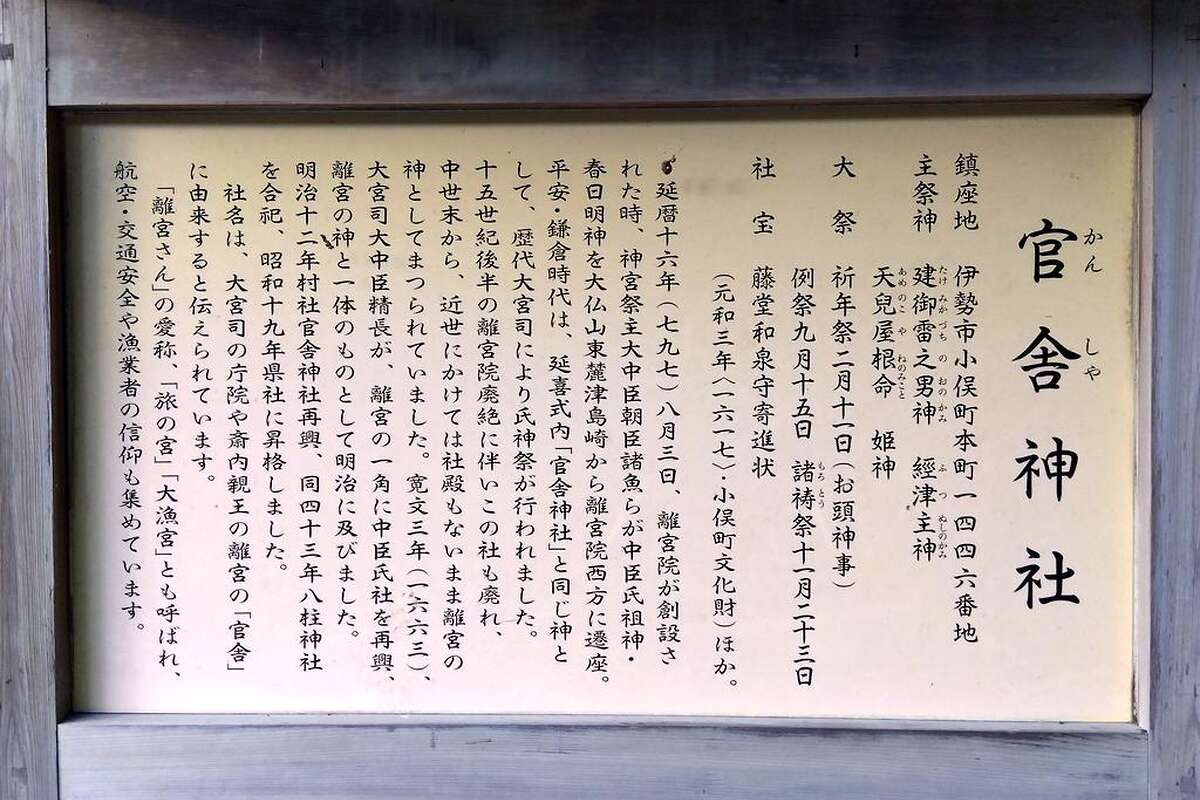 官舎神社
かん しゃ
鎮座地 伊勢市小俣町本町一四四六番地
主祭神 建御雷之男神 經津主神
たけ みかづち の おの かみ ふ つ ぬしのかみ
天兒屋根命 姫神
あめ の こ や ねのみこと
大祭 祈年祭二月十一日(お頭神事)
例祭九月十五日 諸祷祭十一月二十三日
もろ とう
社宝 藤堂和泉守寄進状
(元和三年〈一六一七〉・小俣町文化財)ほか。
延暦十六年(七九七)八月三日、離宮院が創設さ
れた時、神宮祭主大中臣朝臣諸魚らが中臣氏祖神・
春日明神を大仏山東麓津島崎から離宮院西方に遷座。
平安・鎌倉時代は、延喜式内「官舎神社」と同じ神と
して、歴代大宮司により氏神祭が行われました。
十五世紀後半の離宮院廃絶に伴いこの社も廃れ、
中世末から、近世にかけては社殿もないまま離宮の
神としてまつられていました。寛文三年(一六六三)、
大宮司大中臣精長が、離宮の一角に中臣氏社を再興、
離宮の神と一体のものとして明治に及びました。
明治十二年村社官舎神社再興、同四十三年八柱神社
を合祀、昭和十九年県社に昇格しました。
社名は、大宮司の庁院や斎内親王の離宮の「官舎」
に由来すると伝えられています。
「離宮さん」の愛称、「旅の宮」「大漁宮」とも呼ばれ、
航空・交通安全や漁業者の信仰も集めています。